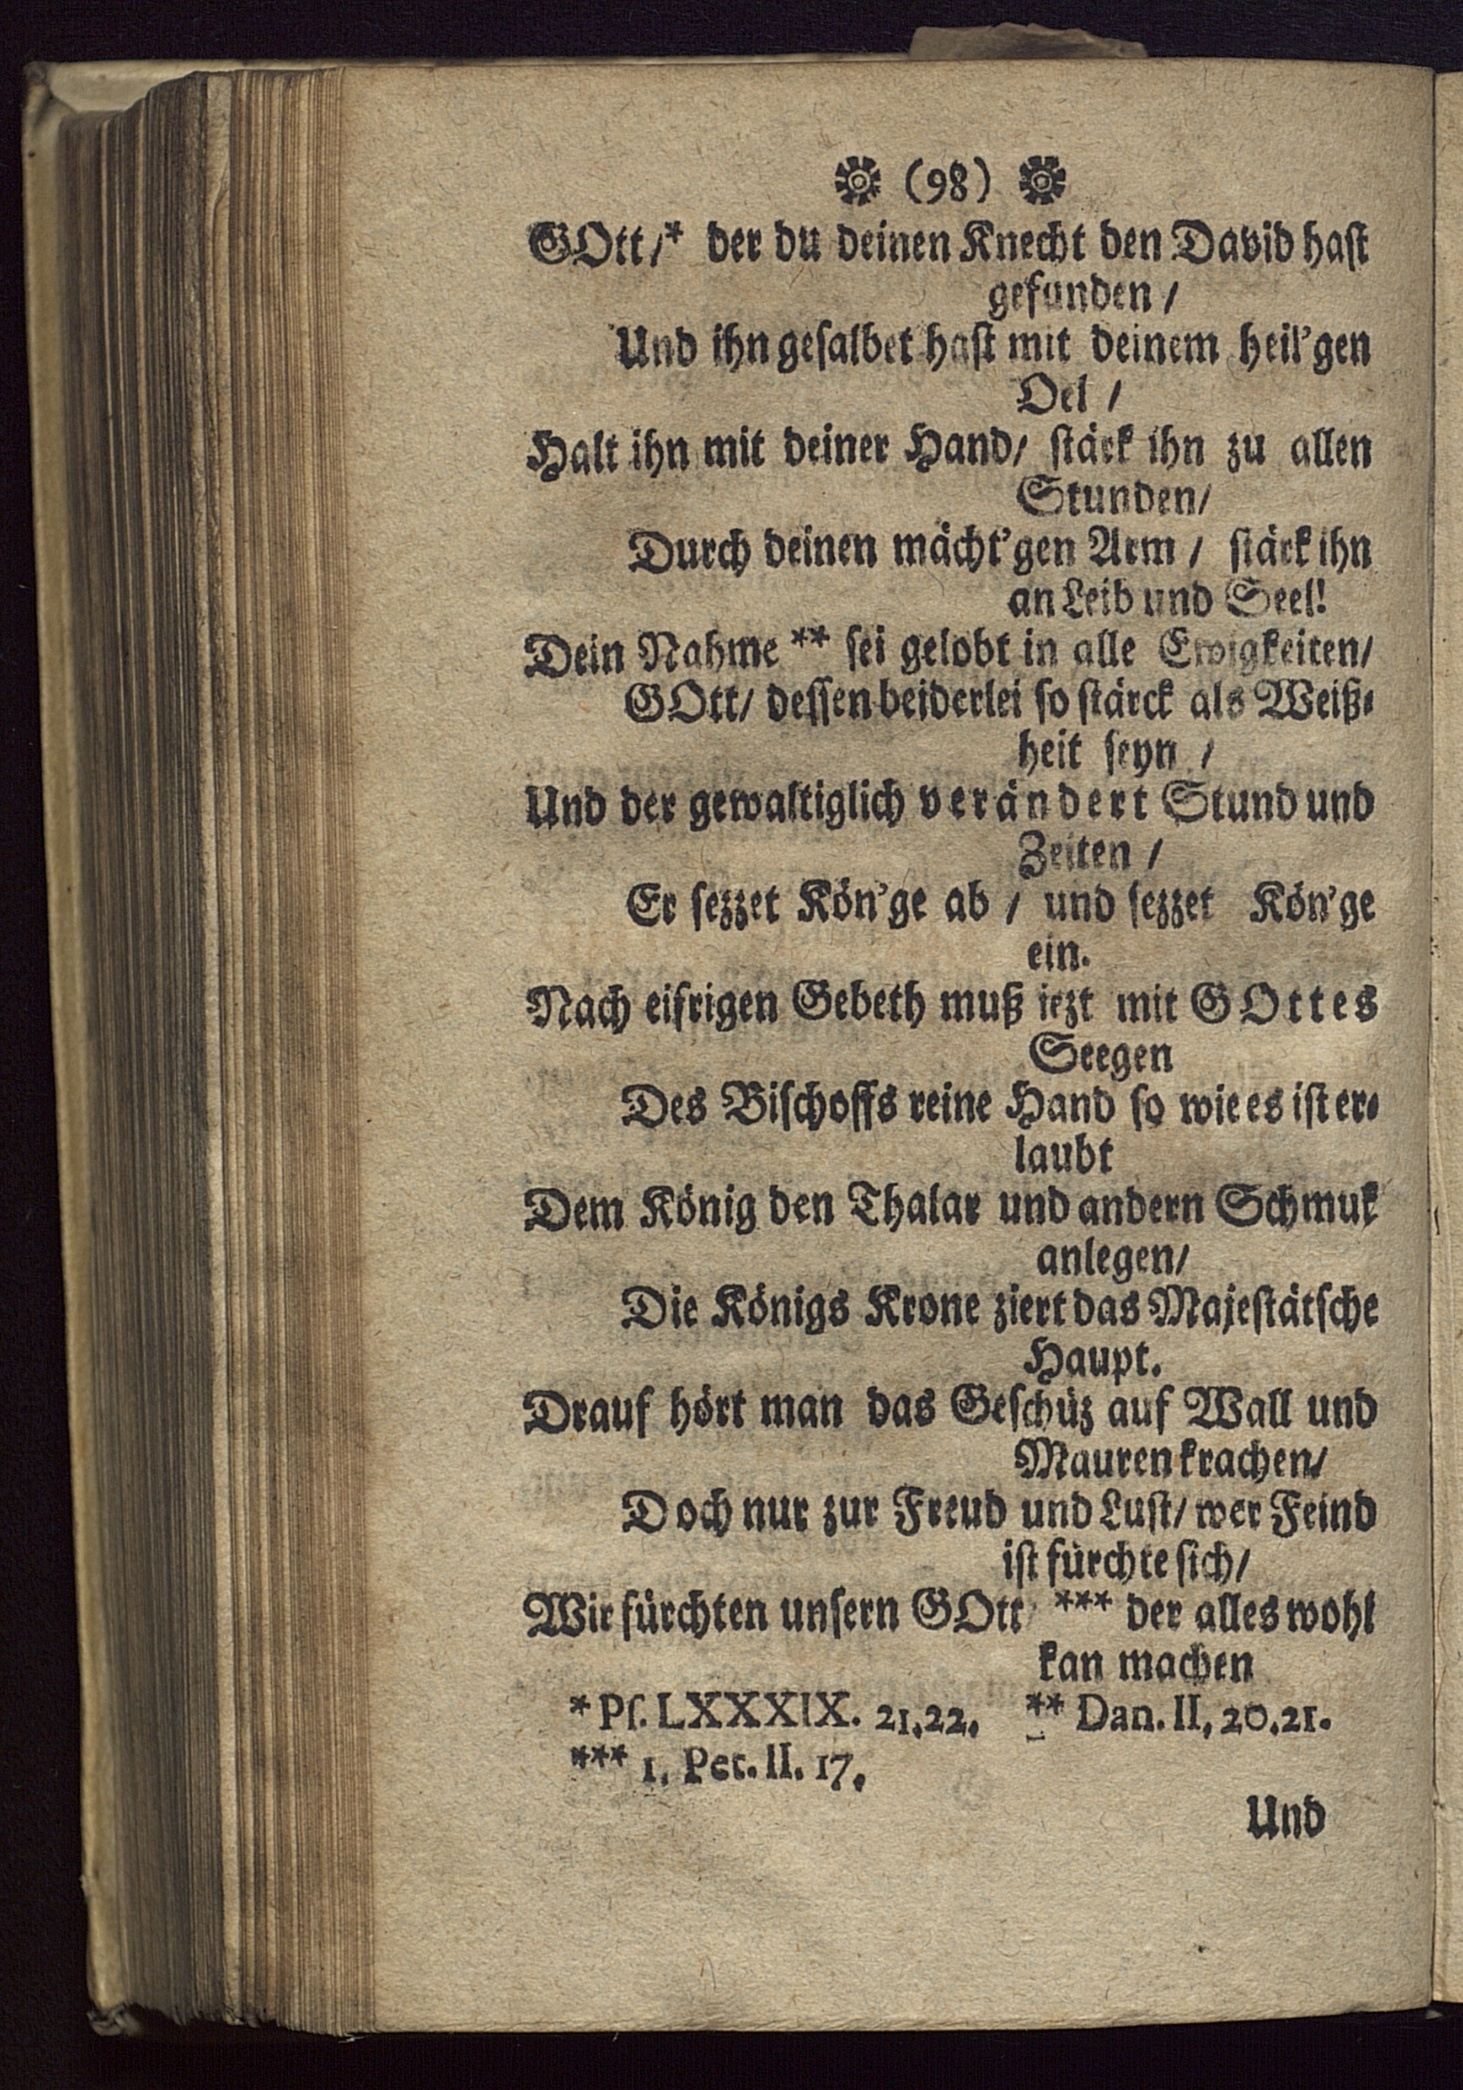 (98)
GOtt/* der du deinen Knecht den David haſt
gefunden /
Und ihn geſalbet haſt mit deinem heil'gen
Oel /
Halt ihn mit deiner Hand/ ſtärk ihn zu allen
Stunden/
Durch deinen mächt'gen Arm / ſtärk ihn
an Leib und Seel!
Dein Nahme ** ſei gelobt in alle Ewigkeiten/
GOtt/ deſſen beiderlei ſo ſtärck als Weiß⸗
heit ſeyn /
Und der gewaltiglich verändert Stund und
Zeiten /
Er ſezzet Kön'ge ab / und ſezzet Kön'ge
ein.
Nach eifrigen Gebeth muß iezt mit GOttes
Seegen
Des Biſchoffs reine Hand ſo wie es iſt er⸗
laubt
Dem König den Thalar und andern Schmuk
anlegen/
Die Königs Krone ziert das Majeſtätſche
Haupt.
Drauf hört man das Geſchüz auf Wall und
Mauren krachen/
Doch nur zur Freud und Luſt/ wer Feind
iſt fürchte ſich/
Wir fürchten unſern GOtt/ *** der alles wohl
kan machen
* Pſ. LXXXIX. 21.22. ** Dan. II, 20.21.
*** 1. Pet. II. 17.
Und